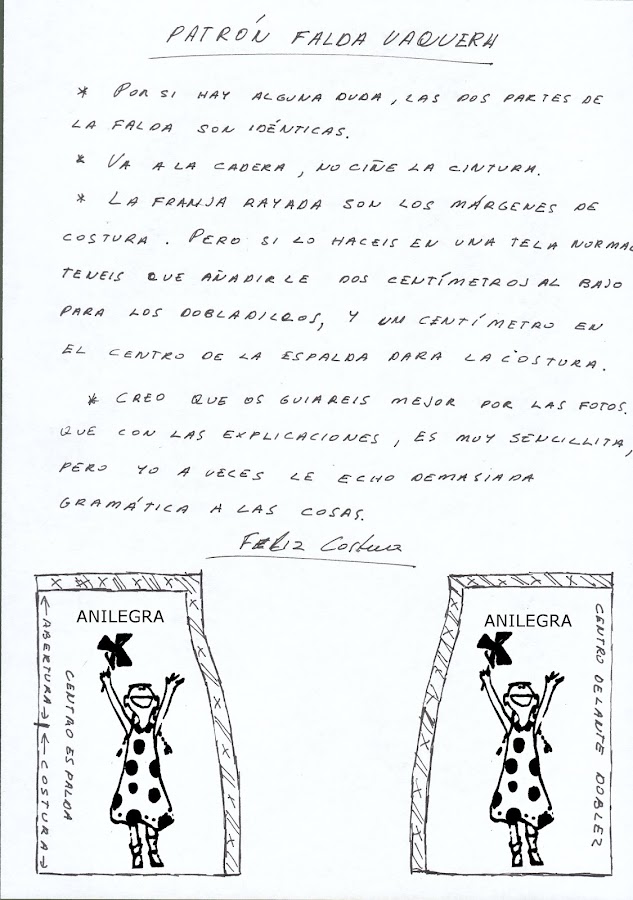 PATRÓN FALDA VAQUERA
* POR SI HAY ALGUNA DUDA, LAS DOS PARTES DE
LA FALDA SON IDÉNTICAS.
* VA A LA CADERA, NO CIÑE LA CINTURA.
* LA FRANJA RAYADA SON LOS MÁRGENES DE
COSTURA. PERO SI LO HACEIS EN UNA TELA NORMAL
TENEIS QUE AÑADIRLE DOS CENTÍMETROS AL BAJO
PARA LOS DOBLADILLOS, Y UN CENTÍMETRO EN
EL CENTRO DE LA ESPALDA PARA LA COSTURA.
* CREO QUE OS GUIAREIS MEJOR POR LAS FOTOS.
QUE CON LAS EXPLICACIONES, ES MUY SENCILLITA,
PERO YO A VECES LE ECHO DEMASIADA
GRAMÁTICA A LAS COSAS.
FELIZ Costura
ANILEGRA
ABERTURA
COSTURA
CENTRO ESPALDA
ANILEGRA
CENTRO DELANTE DOBLEZ